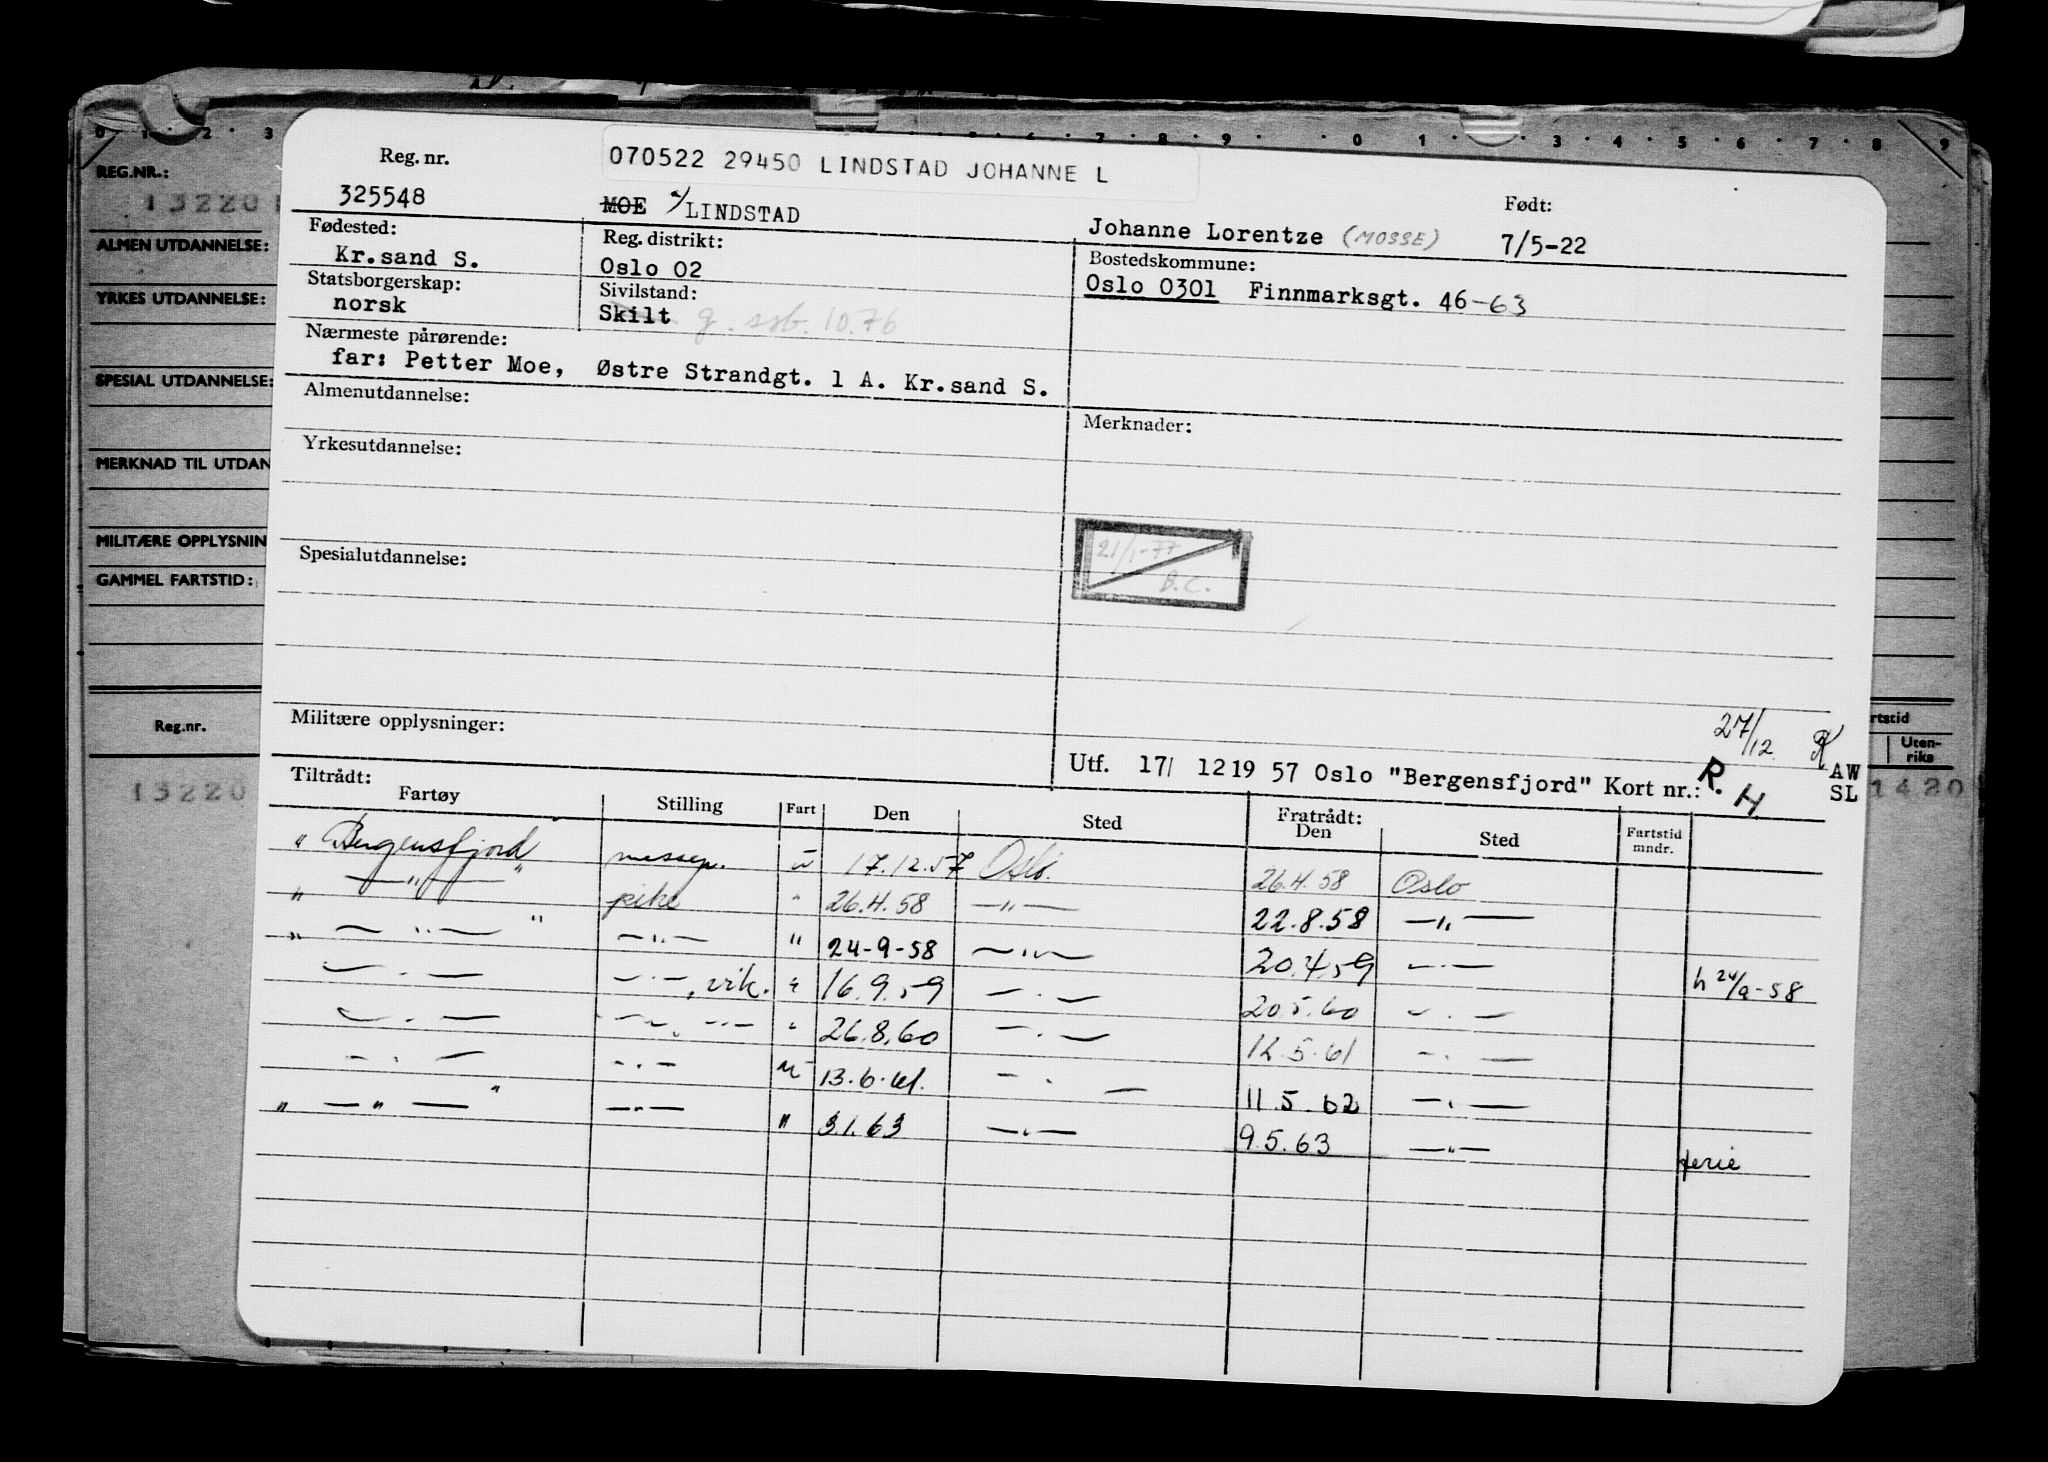 0 1 2 3 5 6 7 8 9 0 1 2 3 4 5 6 7 8 9
REG.NR.:
13220
ALMEN UTDANNELSE:
YRKES UTDANNELSE:
SPESIAL UTDANNELSE:
MERKNAD TIL UTDAN
MILITÆRE OPPLYSNIN
GAMMEL FARTSTID:
Reg.nr.
13220
rtstid
Uten-
riks
1420
Reg. nr. 070522 29450 LINDSTAD JOHANNE L
325548 MOE LINDSTAD Johanne Lorentze (MOSSE) Født: 7/5-22
Fødested: Reg. distrikt: Bostedskommune:
Kr.sand S. Oslo 02 Oslo 0301 Finnmarksgt. 46-63
Statsborgerskap: Sivilstand:
norsk Skilt g. 10.76
Nærmeste pårørende:
far: Petter Moe, Østre Strandgt. 1 A. Kr.sand S.
Almenutdannelse: Merknader:
Yrkesutdannelse:
21/1-77
B.C.
Spesialutdannelse:
Militære opplysninger:
27/12
Utf. 17/ 12 19 57 Oslo "Bergensfjord" Kort nr.: R. H AW SL
Tiltrådt:
Fartøy Stilling Fart Den Sted Fratrådt: Den Sted Fartstid mndr.
" Bergensfjord messep. u 17.12.57 Oslo. 26.4.58 Oslo
" —"— " pike " 26.4.58 —"— 22.8.58 —"—
" —"— " —"— " 24-9-58 —"— 20.4.59 —"— h 24/9-58
—"— —"—, vik. " 16.9.59 —"— 20.5.60 —"—
—"— —"—, —"— " 26.8.60 —"— 12.5.61 —"—
—"— —"— u 13.6.61. —"— 11.5.62 —"—
" —"— " —"— " 3.1.63 —"— 9.5.63 —"— ferie